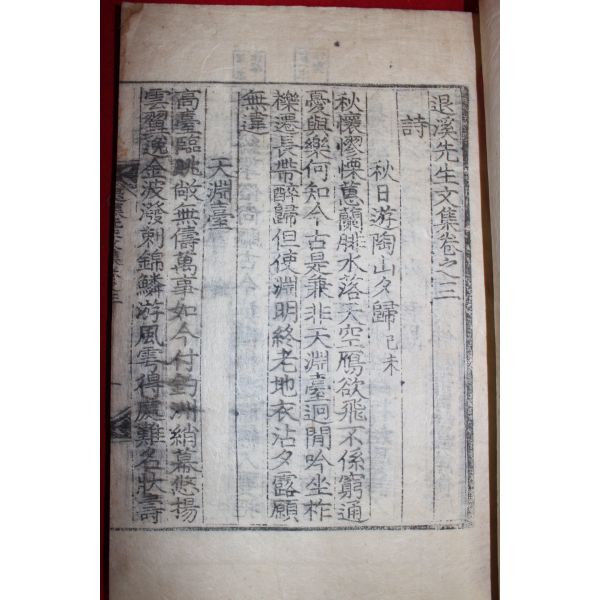 退溪先生文集卷之三
詩
秋日游陶山夕歸 己未
秋懷憀慄蕙蘭腓水落天空鴈欲飛不係窮通
憂與樂何知今古是兼非天淵臺迥閒吟坐柞
櫟遷長帶醉歸但使淵明終老地衣沾夕露願
無違
天淵臺
高臺臨眺敞無儔萬事如今付釣洲綃幕悠揚
雲翼逸金波潑剌錦鱗游風雩得處難名狀壽